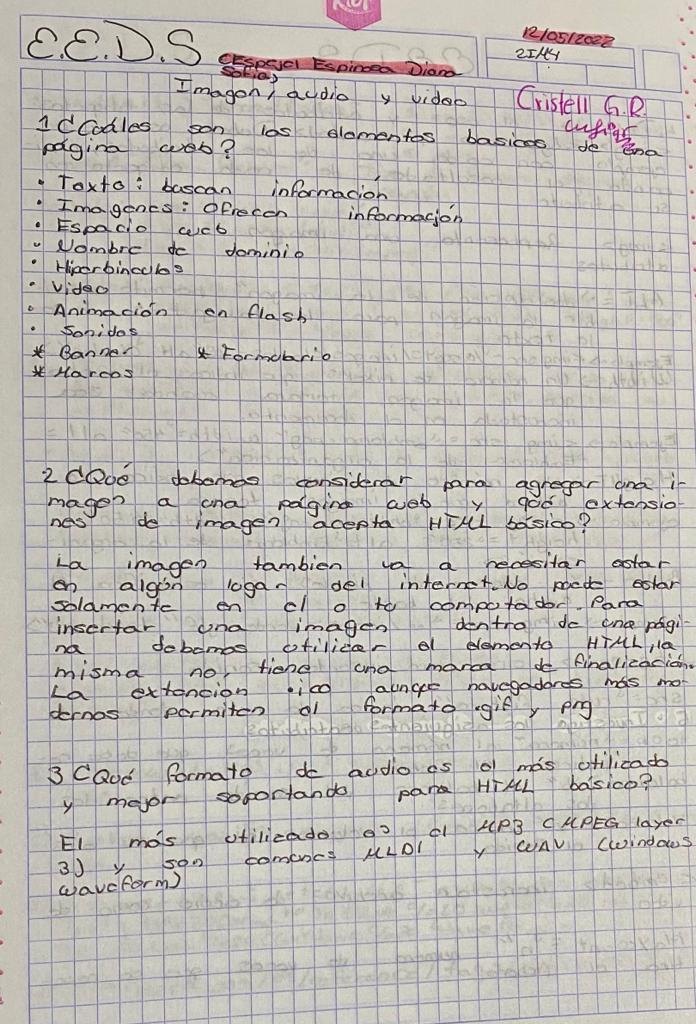 E.E.D.S (Espejel Espinosa Diana
Sofia)
12/05/2022
2IM4
Imagen, audio y video
Cristell G.R.
1 ¿Cuáles son los elementos basicos de una
página web?
• Texto: buscan información
• Imagenes: Ofrecen información
• Espacio web
• Nombre de dominio
• Hiperbinculos
• Video
• Animación en flash
• Sonidos
* Banner * Formulario
* Marcos
2 ¿Qué debemos considerar para agregar una i-
magen a una página web y qué extensio-
nes de imagen acepta HTML básico?
La imagen tambien va a necesitar estar
en algún lugar del internet. No puede estar
solamente en el o tu computador. Para
insertar una imagen dentro de una pági-
na debemos utilizar el elemento HTML, la
misma no, tiene una marca de finalización.
La extención .ico aunque navegadores más mo-
dernos permiten el formato .gif y png
3 ¿Qué formato de audio es el más utilizado
y mejor soportando para HTML básico?
El más utilizado es el MP3 (MPEG layer
3) y son comunes MLDI y WAV (Windows
waveform)